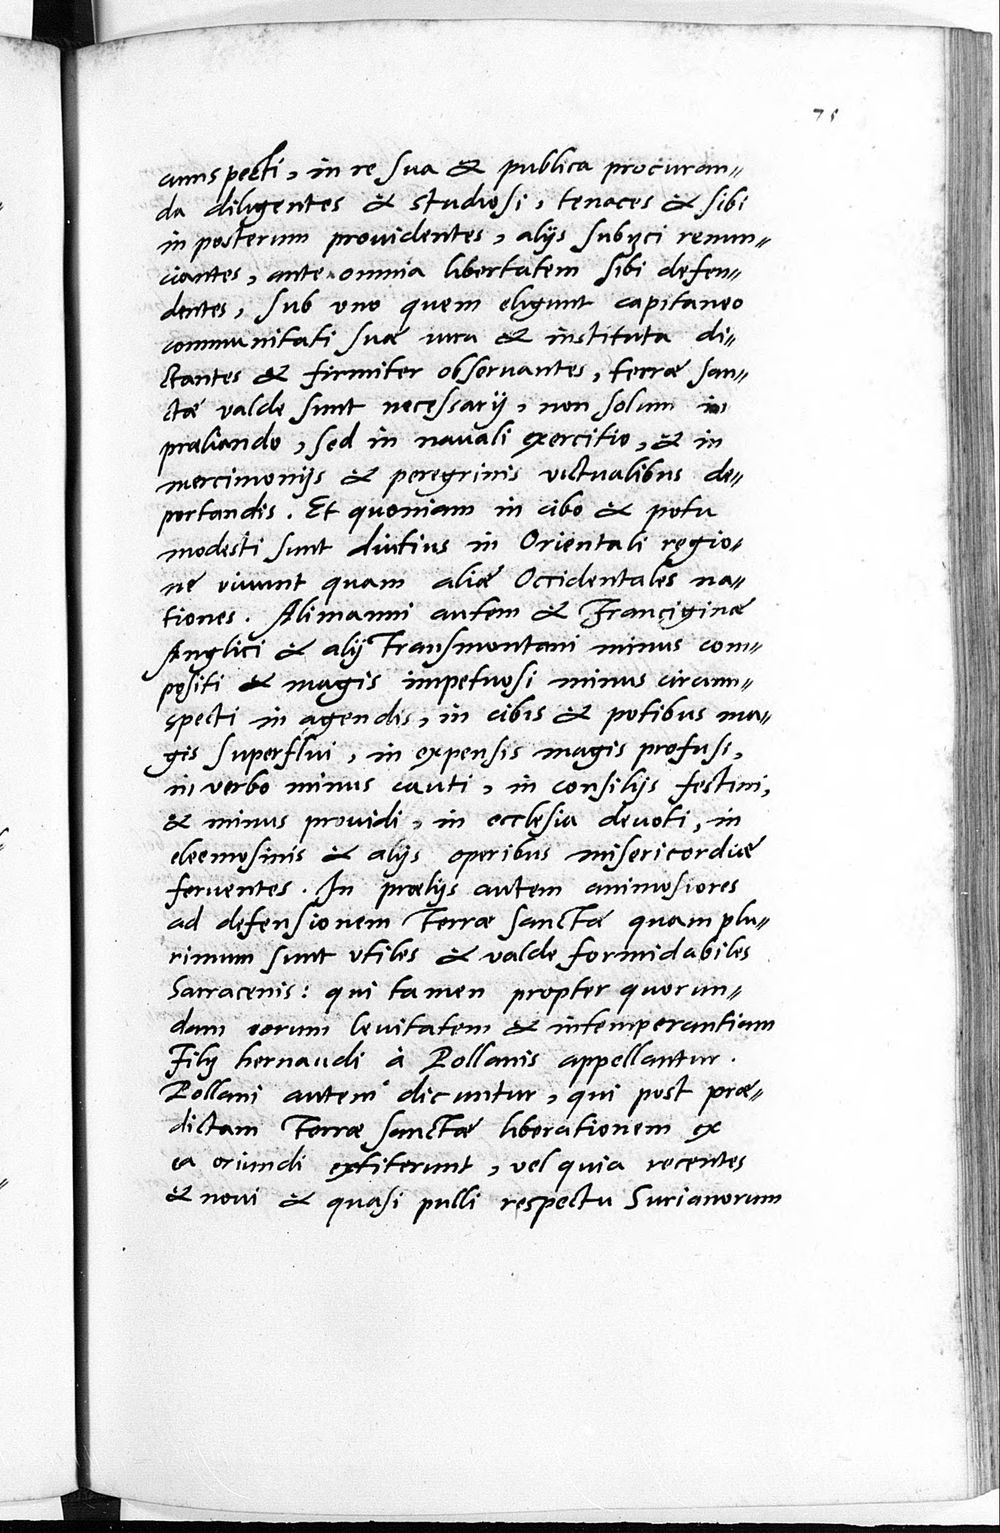 75
cumspecti, in re sua & publica procuran„
da diligentes & studiosi, tenaces & sibi
in posterum prouidentes, alijs subijci renun„
ciantes, ante omnia libertatem sibi defen„
dentes, sub vno quem eligunt capitaneo
communitati suæ iura & instituta di„
ctantes & firmiter obseruantes, terræ san„
ctæ valde sunt necessarij, non solum in
præliando, sed in nauali exercitio, & in
mercimonijs & peregrinis victualibus de„
portandis. Et quoniam in cibo & potu
modesti sunt diutius in Orientali regio„
ne viuunt quam aliæ Occidentales na„
tiones. Alimanni autem & Franciginæ
Anglici & alij Transmontani minus com„
positi & magis impetuosi minus circum„
specti in agendis, in cibis & potibus ma„
gis superflui, in expensis magis profusi,
in verbo minus cauti, in consilijs festini,
& minus prouidi, in ecclesia deuoti, in
eleemosinis & alijs operibus misericordiæ
feruentes. In prælijs autem animosiores
ad defensionem Terræ sanctæ quam plu„
rimum sunt vtiles & valde formidabiles
Sarracenis: qui tamen propter quorun„
dam eorum leuitatem & intemperantiam
Filij hernaudi à Pollanis appellantur.
Pollani autem dicuntur, qui post præ„
dictam Terræ sanctæ liberationem ex
ea oriundi extiterunt, vel quia recentes
& noui & quasi pulli respectu Surianorum